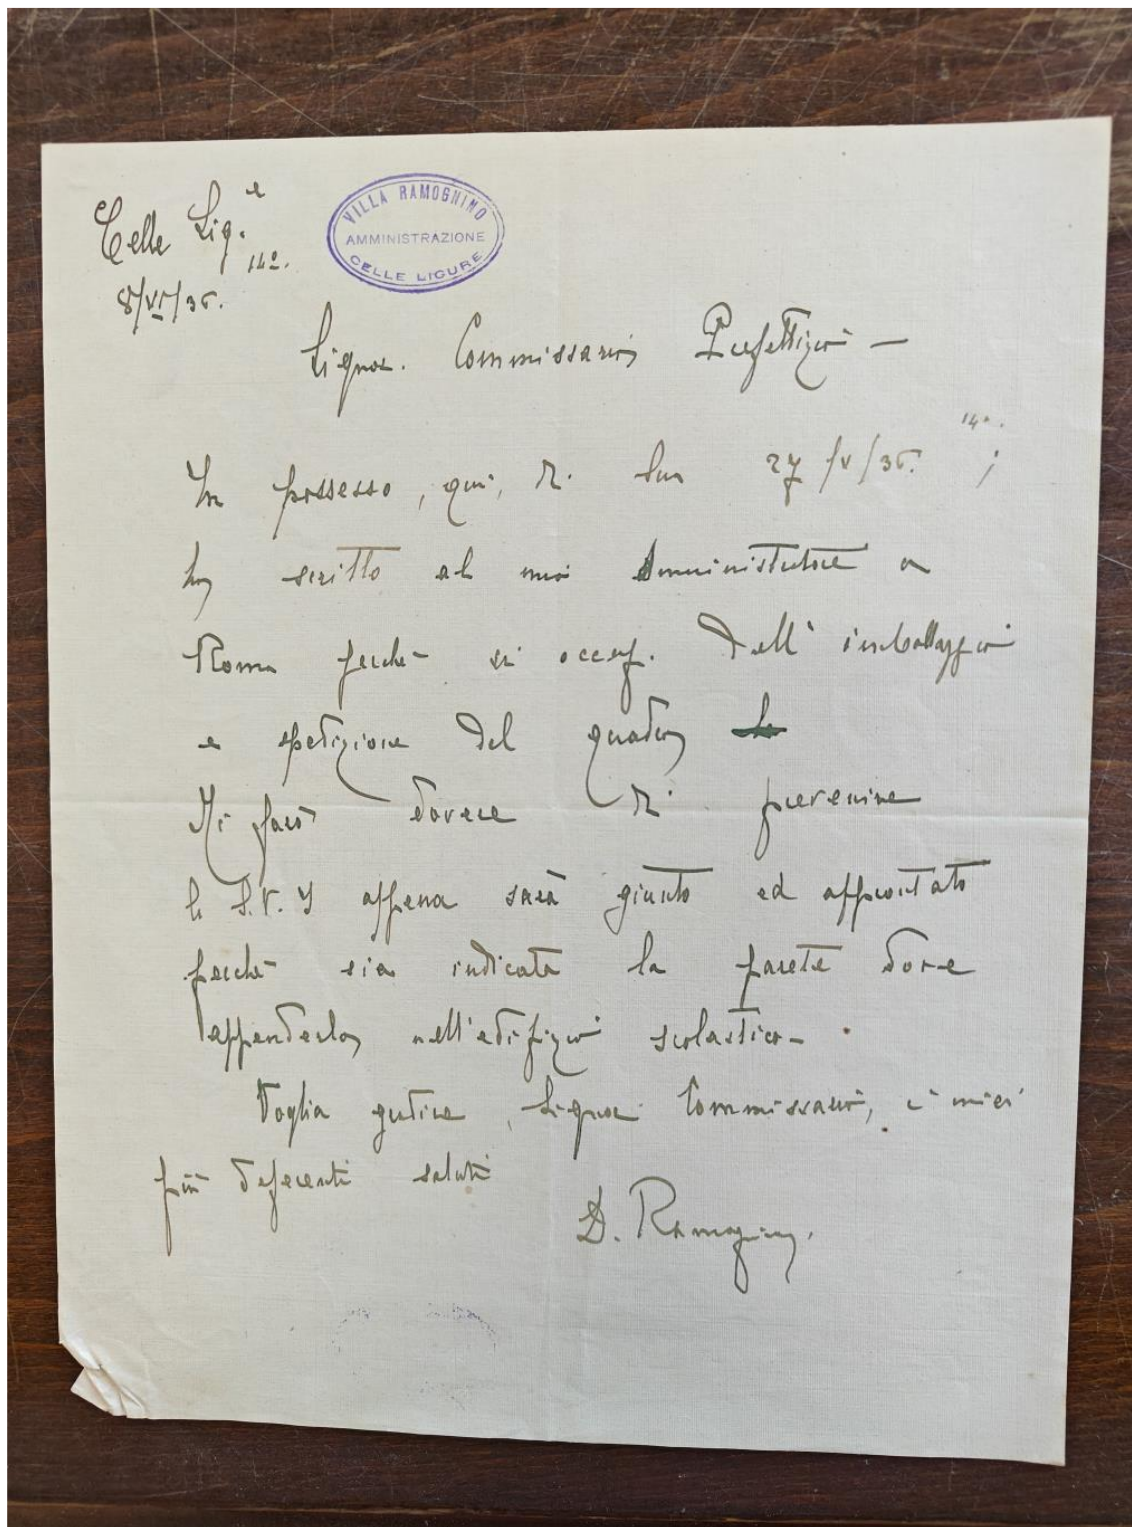 Celle Lig.e
8/VI/36. 14º.
VILLA RAMOGNINO
AMMINISTRAZIONE
CELLE LIGURE
Signor. Commissario Prefettizio —
In possesso, qui, di sua 27/V/36. 14º. ;
ho scritto al mio Amministratore a
Roma perchè si occupi dell'imballaggio
e spedizione del quadro
Mi farò dovere di prevenire
la S.V. appena sarà giunto ed approntato
perchè sia indicata la parete dove
appenderlo nell'edifizio scolastico—
Voglia gradire, Signor Commissario, i miei
più deferenti saluti
D. Ramognino.